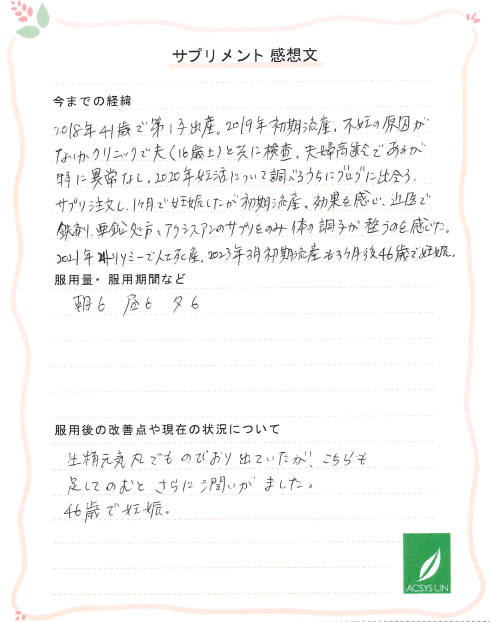 サプリメント 感想文
今までの経緯
2018年41歳で第1子出産。2019年初期流産。不妊の原因が
ないかクリニックで夫(16歳上)と共に検査。夫婦高齢であるが
特に異常なし。2020年妊活について調べるうちにブログに出会う。
サプリ注文し、1ヶ月で妊娠したが初期流産。効果を感じ、近医で
鉄剤、亜鉛処方、アクシスアンのサプリをのみ体の調子が整うのを感じた。
2021年トリソミーで人工死産。2023年3月初期流産も3ヶ月後46歳で妊娠。
服用量・服用期間など
朝6 昼6 夕6
服用後の改善点や現在の状況について
生精元気丸でものびおり出ていたが、こちらも
足してのむと さらに潤いがました。
46歳で妊娠。
ACSYS UN